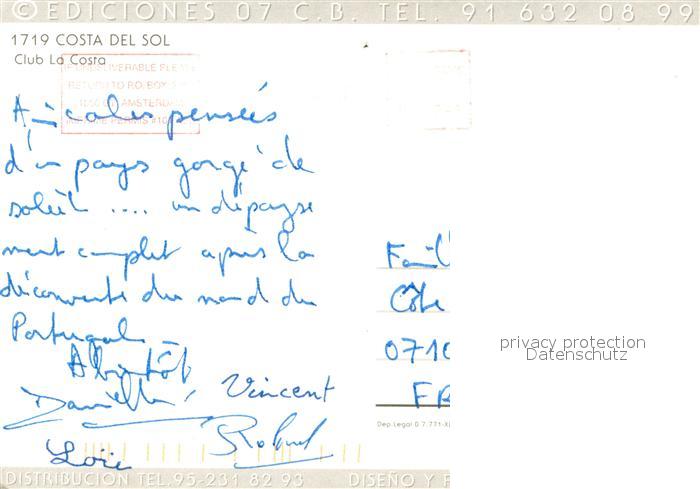 © EDICIONES 07 C.B. TEL. 91 632 08 99
1719 COSTA DEL SOL
Club La Costa
IF UNDELIVERABLE PLEASE
RETURN TO P.O. BOX
AMSTERDAM
Amicales pensées
d'un pays gorgé de
soleil .... un dépayse
ment complet après la
découverte du nord du
Portugal
A bientôt
Danielle Vincent
Roland
Loïc
Côte
0710
FR
privacy protection
Datenschutz
Dep. Legal
DISTRIBUCION TEL. 95-231 82 93 DISEÑO Y F